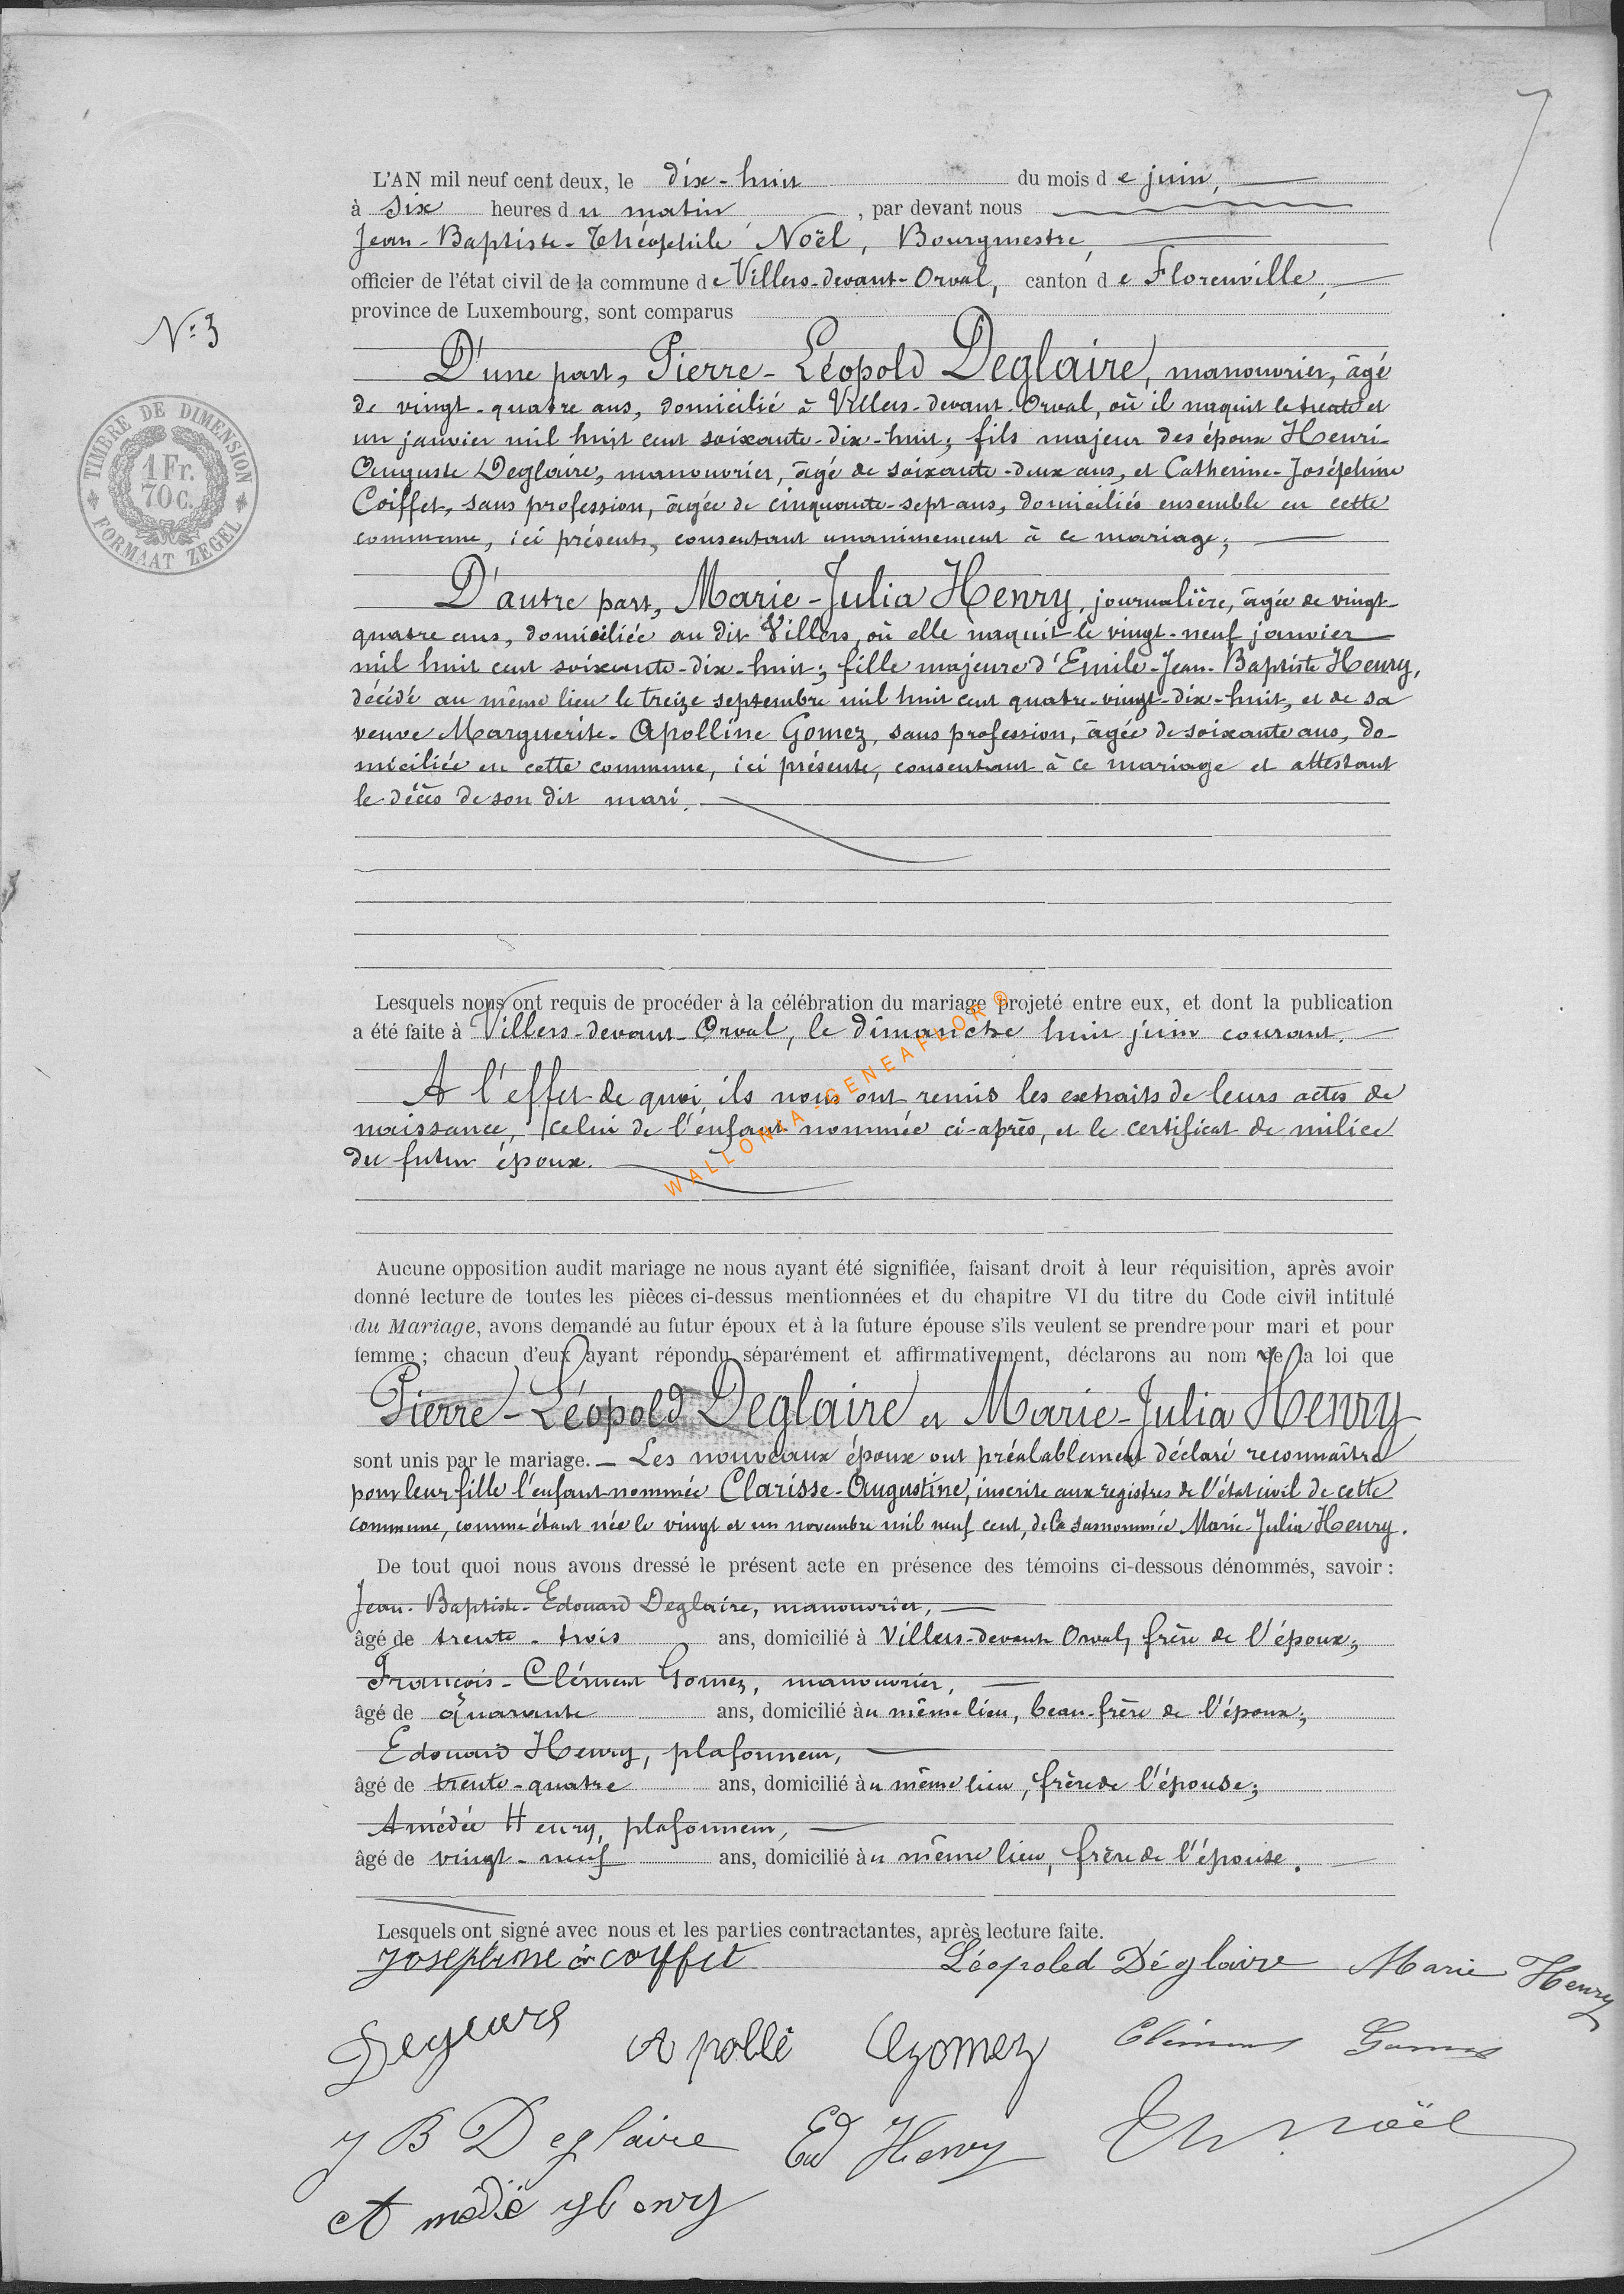 7
L'AN mil neuf cent deux, le dix-huit du mois de juin,
à six heures du matin, par devant nous
Jean-Baptiste-Théophile Noël, Bourgmestre,
officier de l'état civil de la commune de Villers-devant-Orval, canton de Florenville,
province de Luxembourg, sont comparus
N:3
D'une part, Pierre-Léopold Deglaire, manouvrier, âgé
de vingt-quatre ans, domicilié à Villers-devant-Orval, où il naquit le trente et
un janvier mil huit cent soixante-dix-huit; fils majeur des époux Henri-
Auguste Deglaire, manouvrier, âgé de soixante-deux ans, et Catherine-Joséphine
Coiffet, sans profession, âgée de cinquante-sept ans, domiciliés ensemble en cette
commune, ici présents, consentant unanimement à ce mariage;
TIMBRE DE DIMENSION
1 Fr.
70 C.
FORMAAT ZEGEL
D'autre part, Marie-Julia Henry, journalière, âgée de vingt-
quatre ans, domiciliée au dit Villers, où elle naquit le vingt-neuf janvier
mil huit cent soixante-dix-huit; fille majeure d'Emile-Jean-Baptiste Henry,
décédé au même lieu le treize septembre mil huit cent quatre-vingt-dix-huit, et de sa
veuve Marguerite-Apolline Gomez, sans profession, âgée de soixante ans, do-
miciliée en cette commune, ici présente, consentant à ce mariage et attestant
le décès de son dit mari.
Lesquels nous ont requis de procéder à la célébration du mariage projeté entre eux, et dont la publication
a été faite à Villers-devant-Orval, le dimanche huit juin courant.
A l'effet de quoi, ils nous ont remis les extraits de leurs actes de
naissance, celui de l'enfant nommée ci-après, et le certificat de milice
du futur époux.
WALLONIA-GENEAFLOR ®
Aucune opposition audit mariage ne nous ayant été signifiée, faisant droit à leur réquisition, après avoir
donné lecture de toutes les pièces ci-dessus mentionnées et du chapitre VI du titre du Code civil intitulé
du Mariage, avons demandé au futur époux et à la future épouse s'ils veulent se prendre pour mari et pour
femme ; chacun d'eux ayant répondu séparément et affirmativement, déclarons au nom de la loi que
Pierre-Léopold Deglaire et Marie-Julia Henry
sont unis par le mariage. — Les nouveaux époux ont préalablement déclaré reconnaître
pour leur fille l'enfant nommée Clarisse-Augustine, inscrite aux registres de l'état civil de cette
commune, comme étant née le vingt et un novembre mil neuf cent, de la susnommée Marie-Julia Henry.
De tout quoi nous avons dressé le présent acte en présence des témoins ci-dessous dénommés, savoir :
Jean-Baptiste-Edouard Deglaire, manouvrier,
âgé de trente-trois ans, domicilié à Villers-devant Orval, frère de l'époux;
François-Clément Gomez, manouvrier,
âgé de quarante ans, domicilié au même lieu, beau-frère de l'époux;
Edouard Henry, plafonneur,
âgé de trente-quatre ans, domicilié au même lieu, frère de l'épouse;
Amédée Henry, plafonneur,
âgé de vingt-neuf ans, domicilié au même lieu, frère de l'épouse.
Lesquels ont signé avec nous et les parties contractantes, après lecture faite.
Josephine coiffet Léopoled Déglaire Marie Henry
Apolle Gomez Clément Gomez
J B Deglaire Ed Henry Th Noël
Amédé Henry